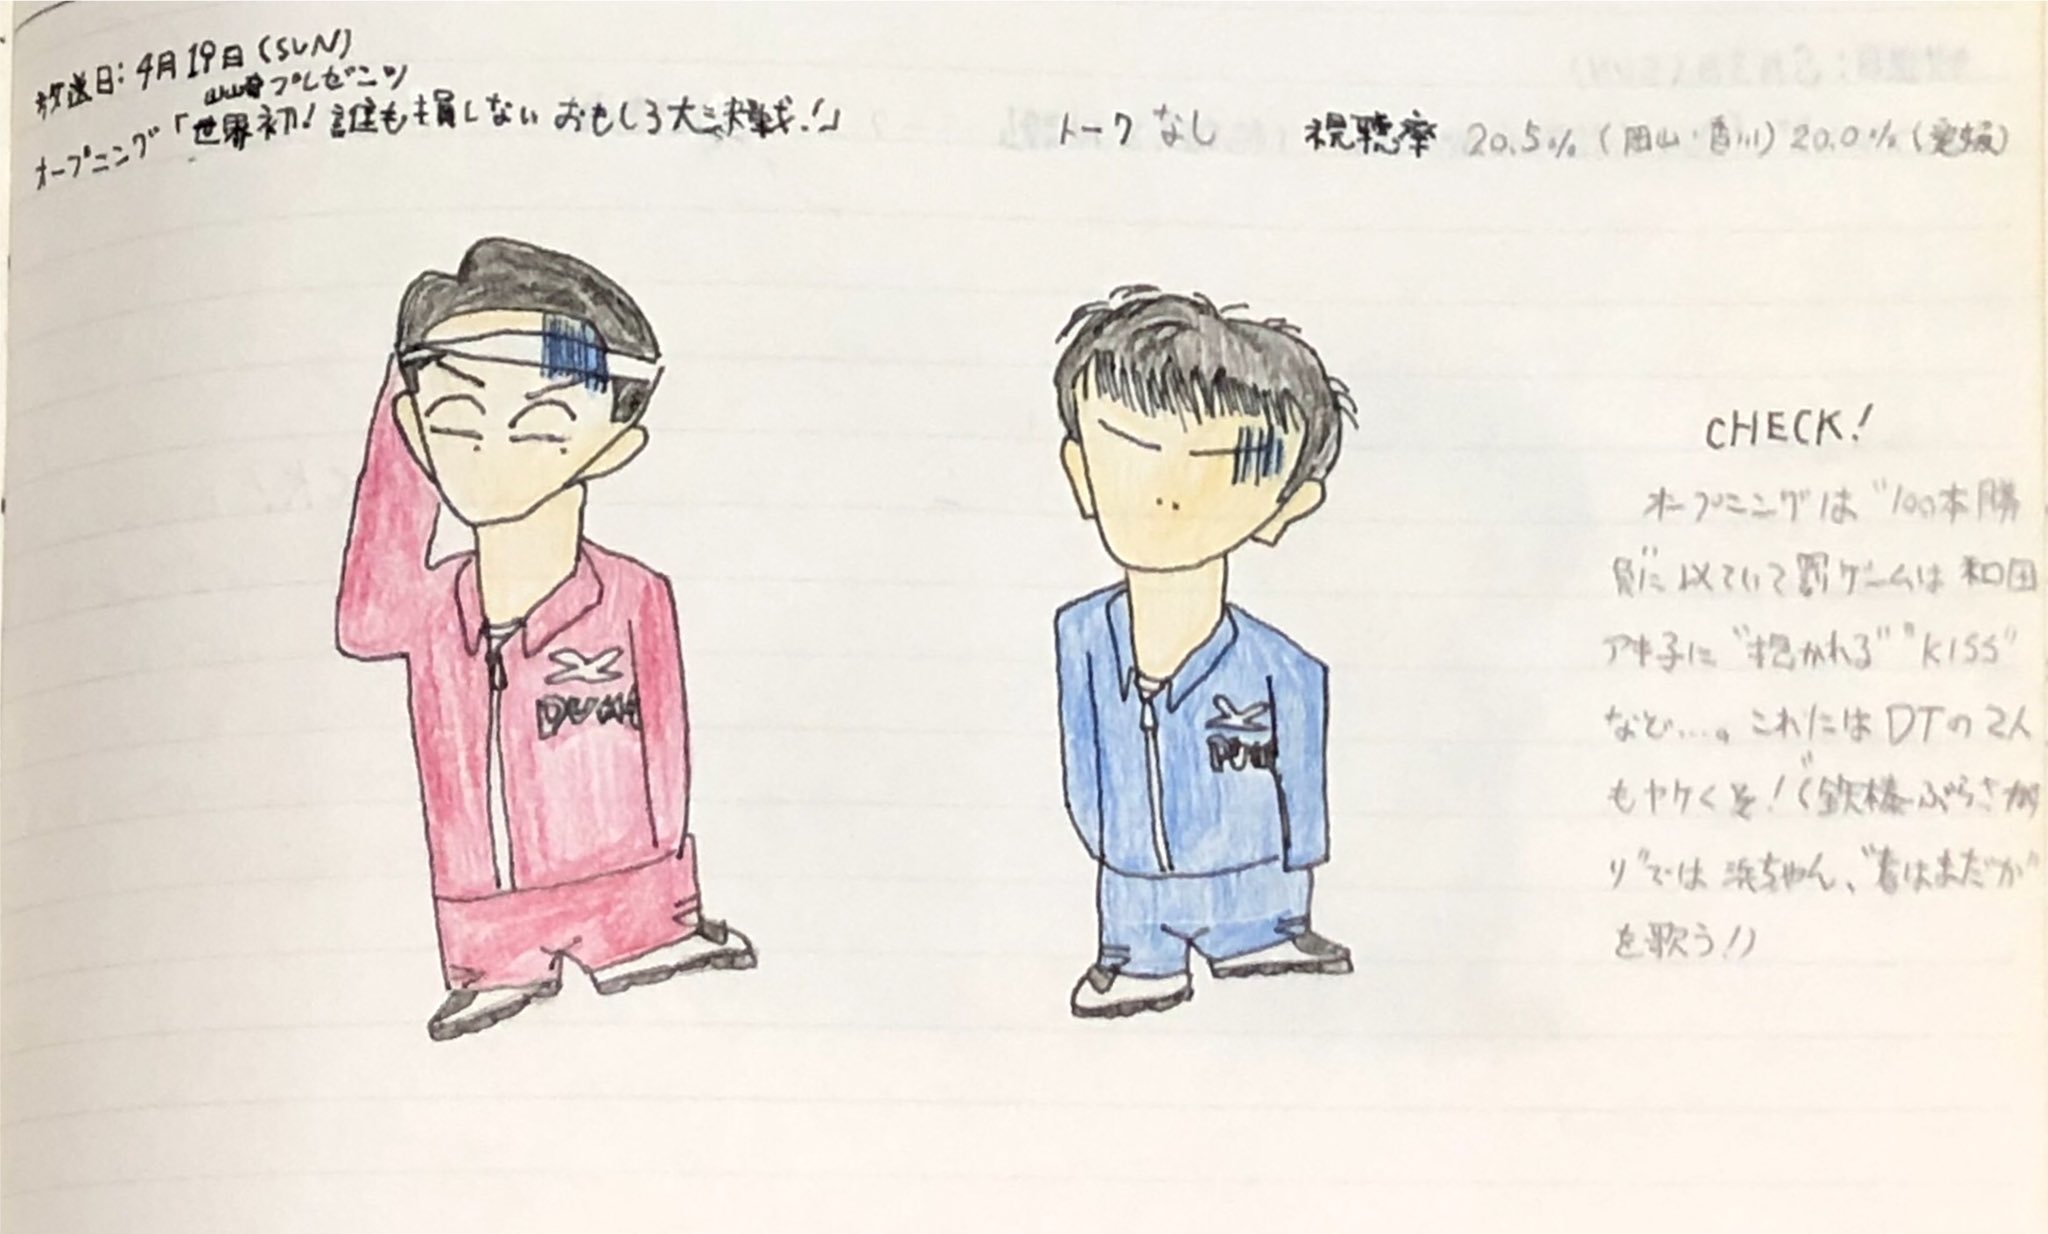 放送日：4月19日(SUN)
プレゼンツ
オープニング「世界初！誰も損しないおもしろ大決戦！」
トークなし
視聴率 20.5%（岡山・香川）20.0%（愛媛）
PUMA
PUM
CHECK!
オープニングは"100本勝
負"に似ていて罰ゲームは和田
アキ子に"抱かれる""KISS"
など…。これにはDTの2人
もヤケくそ！（"鉄棒ぶらさが
り"では浜ちゃん、"春はまだか"
を歌う！）